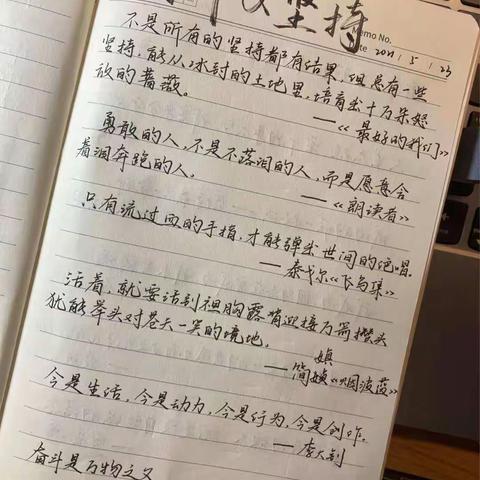 坚持
Memo No.
Date 2021 / 5 / 23
不是所有的坚持都有结果,但总有一些
坚持,能从冰封的土地里,培育出十万朵怒
放的蔷薇。
——《最好的我们》
勇敢的人,不是不落泪的人,而是愿意含
着泪奔跑的人。
——《朗读者》
只有流过血的手指,才能弹出世间的绝唱。
——泰戈尔《飞鸟集》
活着,就要活到袒胸露背迎接万箭攒头
犹能举头对苍天一笑的境地。
嫃
——简媜《烟波蓝》
今是生活,今是动力,今是行为,今是创作。
——李大钊
奋斗是万物之父